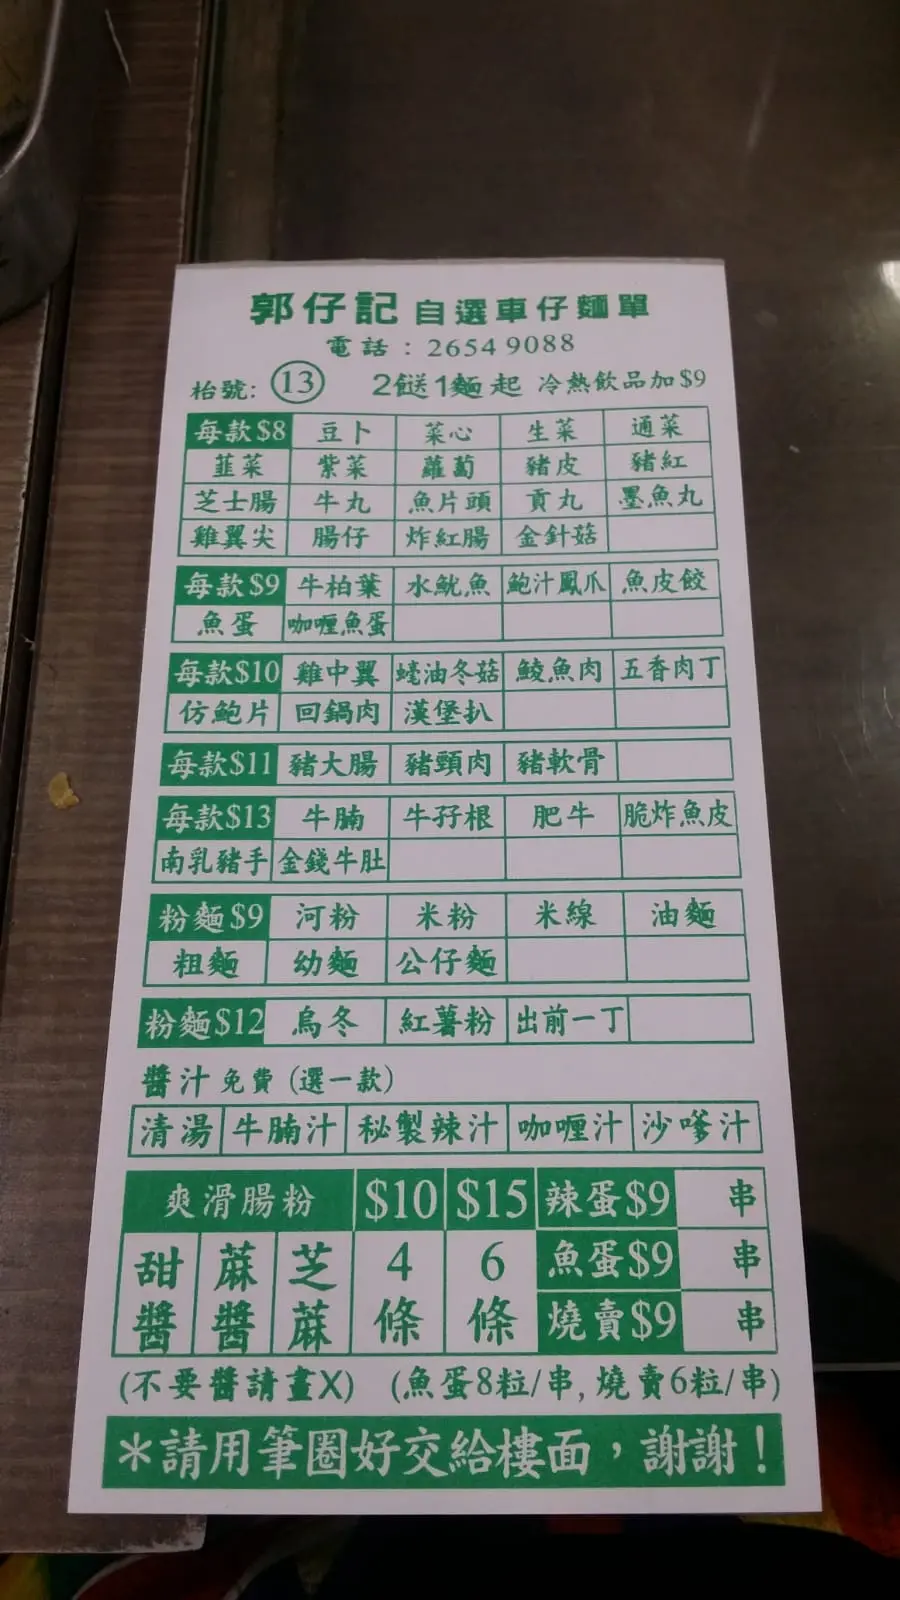 郭仔記 自選車仔麵單
電話：2654 9088
枱號: 13 2餸1麵起 冷熱飲品加$9
每款$8 豆卜 菜心 生菜 通菜
韮菜 紫菜 蘿蔔 豬皮 豬紅
芝士腸 牛丸 魚片頭 貢丸 墨魚丸
雞翼尖 腸仔 炸紅腸 金針菇
每款$9 牛柏葉 水魷魚 鮑汁鳳爪 魚皮餃
魚蛋 咖喱魚蛋
每款$10 雞中翼 蠔油冬菇 鯪魚肉 五香肉丁
仿鮑片 回鍋肉 漢堡扒
每款$11 豬大腸 豬頸肉 豬軟骨
每款$13 牛腩 牛孖根 肥牛 脆炸魚皮
南乳豬手 金錢牛肚
粉麵$9 河粉 米粉 米線 油麵
粗麵 幼麵 公仔麵
粉麵$12 烏冬 紅薯粉 出前一丁
醬汁免費 (選一款)
清湯 牛腩汁 秘製辣汁 咖喱汁 沙嗲汁
爽滑腸粉 $10 $15 辣蛋$9 串
甜醬 蔴醬 芝蔴 4條 6條 魚蛋$9 串
燒賣$9 串
(不要醬請畫X) (魚蛋8粒/串, 燒賣6粒/串)
*請用筆圈好交給樓面，謝謝！